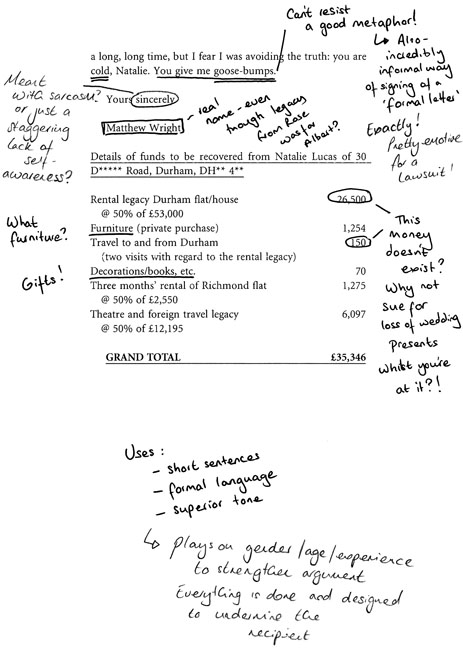 Can't resist
a good metaphor!
a long, long time, but I fear I was avoiding the truth: you are
cold, Natalie. You give me goose-bumps.
↳ Also -
incredibly
informal way
of signing of a
'formal letter'
Exactly!
Pretty emotive
for a
lawsuit!
Meant
with sarcasm?
or just a
staggering
lack of
self-
awareness?
Yours sincerely
Matthew Wright
→ real
name - even
though legacy
from Rose
was for
Albert?
Details of funds to be recovered from Natalie Lucas of 30
D***** Road, Durham, DH** 4**
Rental legacy Durham flat/house 26,500
@ 50% of £53,000
Furniture (private purchase) 1,254
Travel to and from Durham 150
(two visits with regard to the rental legacy)
Decorations/books, etc. 70
Three months' rental of Richmond flat 1,275
@ 50% of £2,550
Theatre and foreign travel legacy 6,097
@ 50% of £12,195
GRAND TOTAL £35,346
What
furniture?
Gifts!
This
money
doesn't
exist?
Why not
sue for
loss of wedding
presents
whilst you're
at it?!
Uses:
- short sentences
- formal language
- superior tone
↳ plays on gender/age/experience
to strengthen argument
Everything is done and designed
to undermine the
recipient